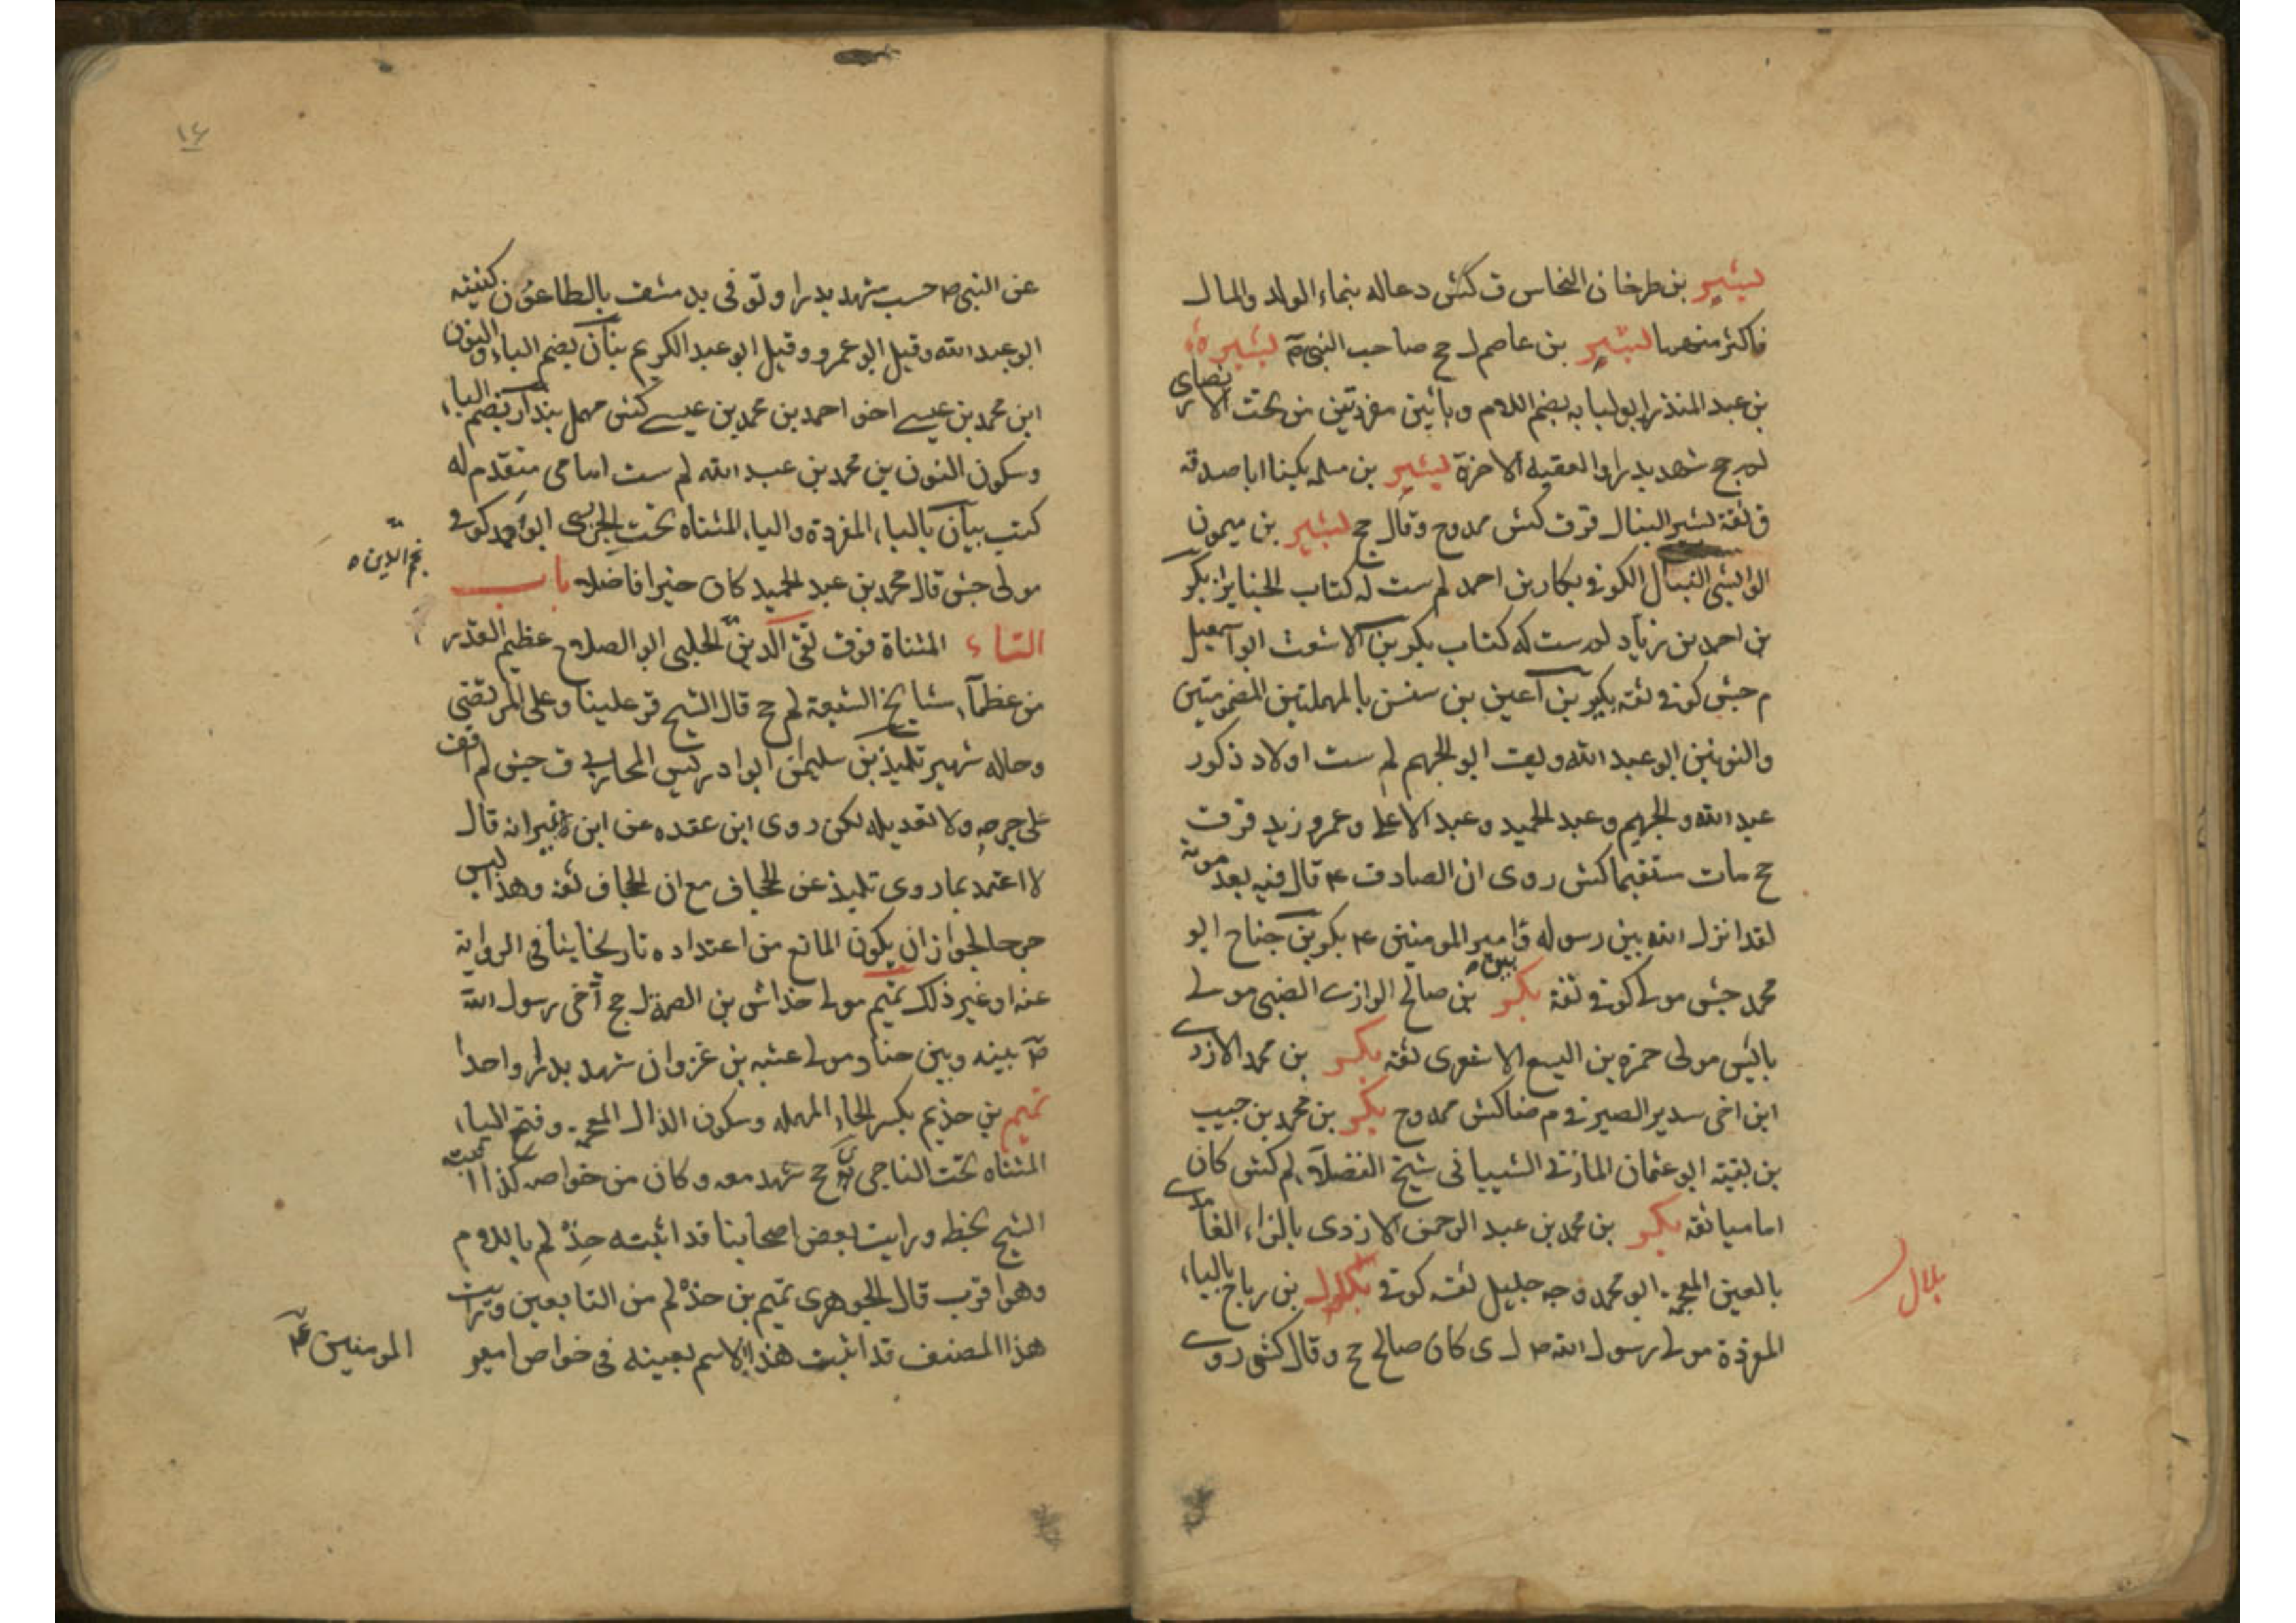 بشير بن طرخان النخاس ق كش دعا له بنماء الولد والمال
فاكثر منهما بشير بن عاصم ل جج صاحب النبي ص بشير
بن عبد المنذر ابو لبابه بضم اللام وبائين مفردتين من تحت الانصاري
ل جج شهد بدرا والعقبه الاخرة بشير بن سلمه يكنا ابا صدقه
ق ثقة بشير النبال قر ق كش ممدوح وقال جج بشير بن ميمون
الوابشي النبال الكوفي بكار بن احمد لم ست له كتاب الجنايز بكر
بن احمد بن زياد لم ست له كتاب بكر بن الاشعث ابو اسمعيل
م جش كوفي ثقه بكير بن اعين بن سنسن بالمهملتين المضمومتين
والنونين ابو عبد الله ويق ابو الجهم لم ست اولاد ذكور
عبد الله والجهم وعبد الحميد وعبد الاعلى وعمر وزيد قر ق
جج مات مستقيما كش روى ان الصادق ع قال فيه بعد موته
لقد انزله الله بين رسوله وامير المومنين ع بكر بن جناح ابو
محمد جش مولى كوفي ثقة بكر بن صالح الرازى الضبى مولى
بائس مولى حمزه بن اليسع الاشعرى ثقه بكر بن محمد الازدى
ابن اخى سدير الصيرفى م ضا كش ممدوح بكر بن محمد بن حبيب
بن بقيته ابو عثمان المازنى الشيبانى شيخ الفضلاء لم كش كان
اماميا ثقه بكر بن محمد بن عبد الرحمن الازدى بالزاء الغامدى
بالغين المعجمه ابو محمد وجه جليل ثقه كوفى بلال بن رباح بالباء
المفردة مولى رسول الله ص ل ى كان صالح جج وقال كش روى
بلال
١٤
عن النبى ص حسب شهد بدرا وتوفى بدمشق بالطاعون كنيته
ابو عبد الله وقيل ابو عمرو وقيل ابو عبد الكريم بنان بضم الباء والنون
ابن محمد بن عيسى اخو احمد بن محمد بن عيسى كش مهمل بندار بضم الباء
وسكون النون بن محمد بن عبد الله لم ست امامى متقدم له
كتب بيان بالباء المفردة والياء المثناه تحت الجزرى ابو احمد كوفى
مولى جش قال محمد بن عبد الحميد كان خيرا فاضلا باب
التاء المثناة فوق تقى الدين الحلبى ابو الصلاح عظيم القدر
نجم الدين
من عظماء مشايخ الشيعة لم جج قال الشيخ قرء علينا وعلى المرتضى
وحاله شهير تليد بن سليمان ابو ادريس المحاربى ق جش لم اقف
على جرحه ولا تعديله لكن روى ابن عقده عن ابن نمير انه قال
لا اعتمد بما روى تليد عن الجحاف مع ان الجحاف ثقه وهذا ليس
جرحا لجواز ان يكون المانع من اعتداده تاريخا ينافى الرواية
عنه او غير ذلك تميم مولى خداش بن الصمة ل جج آخى رسول الله
ص بينه وبين حباب مولى عتبه بن غزوان شهد بدرا واحدا
تميم بن حذيم بكسر الحاء المهمله وسكون الذال المعجمه وفتح الياء
المثناه تحت الناجى ى جج شهد معه وكان من خواصه كذا اثبته
الشيخ بخطه ورايت بعض اصحابنا قد اثبته حذلم باللام
وهو اقرب قال الجوهرى تميم بن حذلم من التابعين ورايت
هذا المصنف قد اثبت هذا الاسم بعينه فى خواص امير
المومنين ع